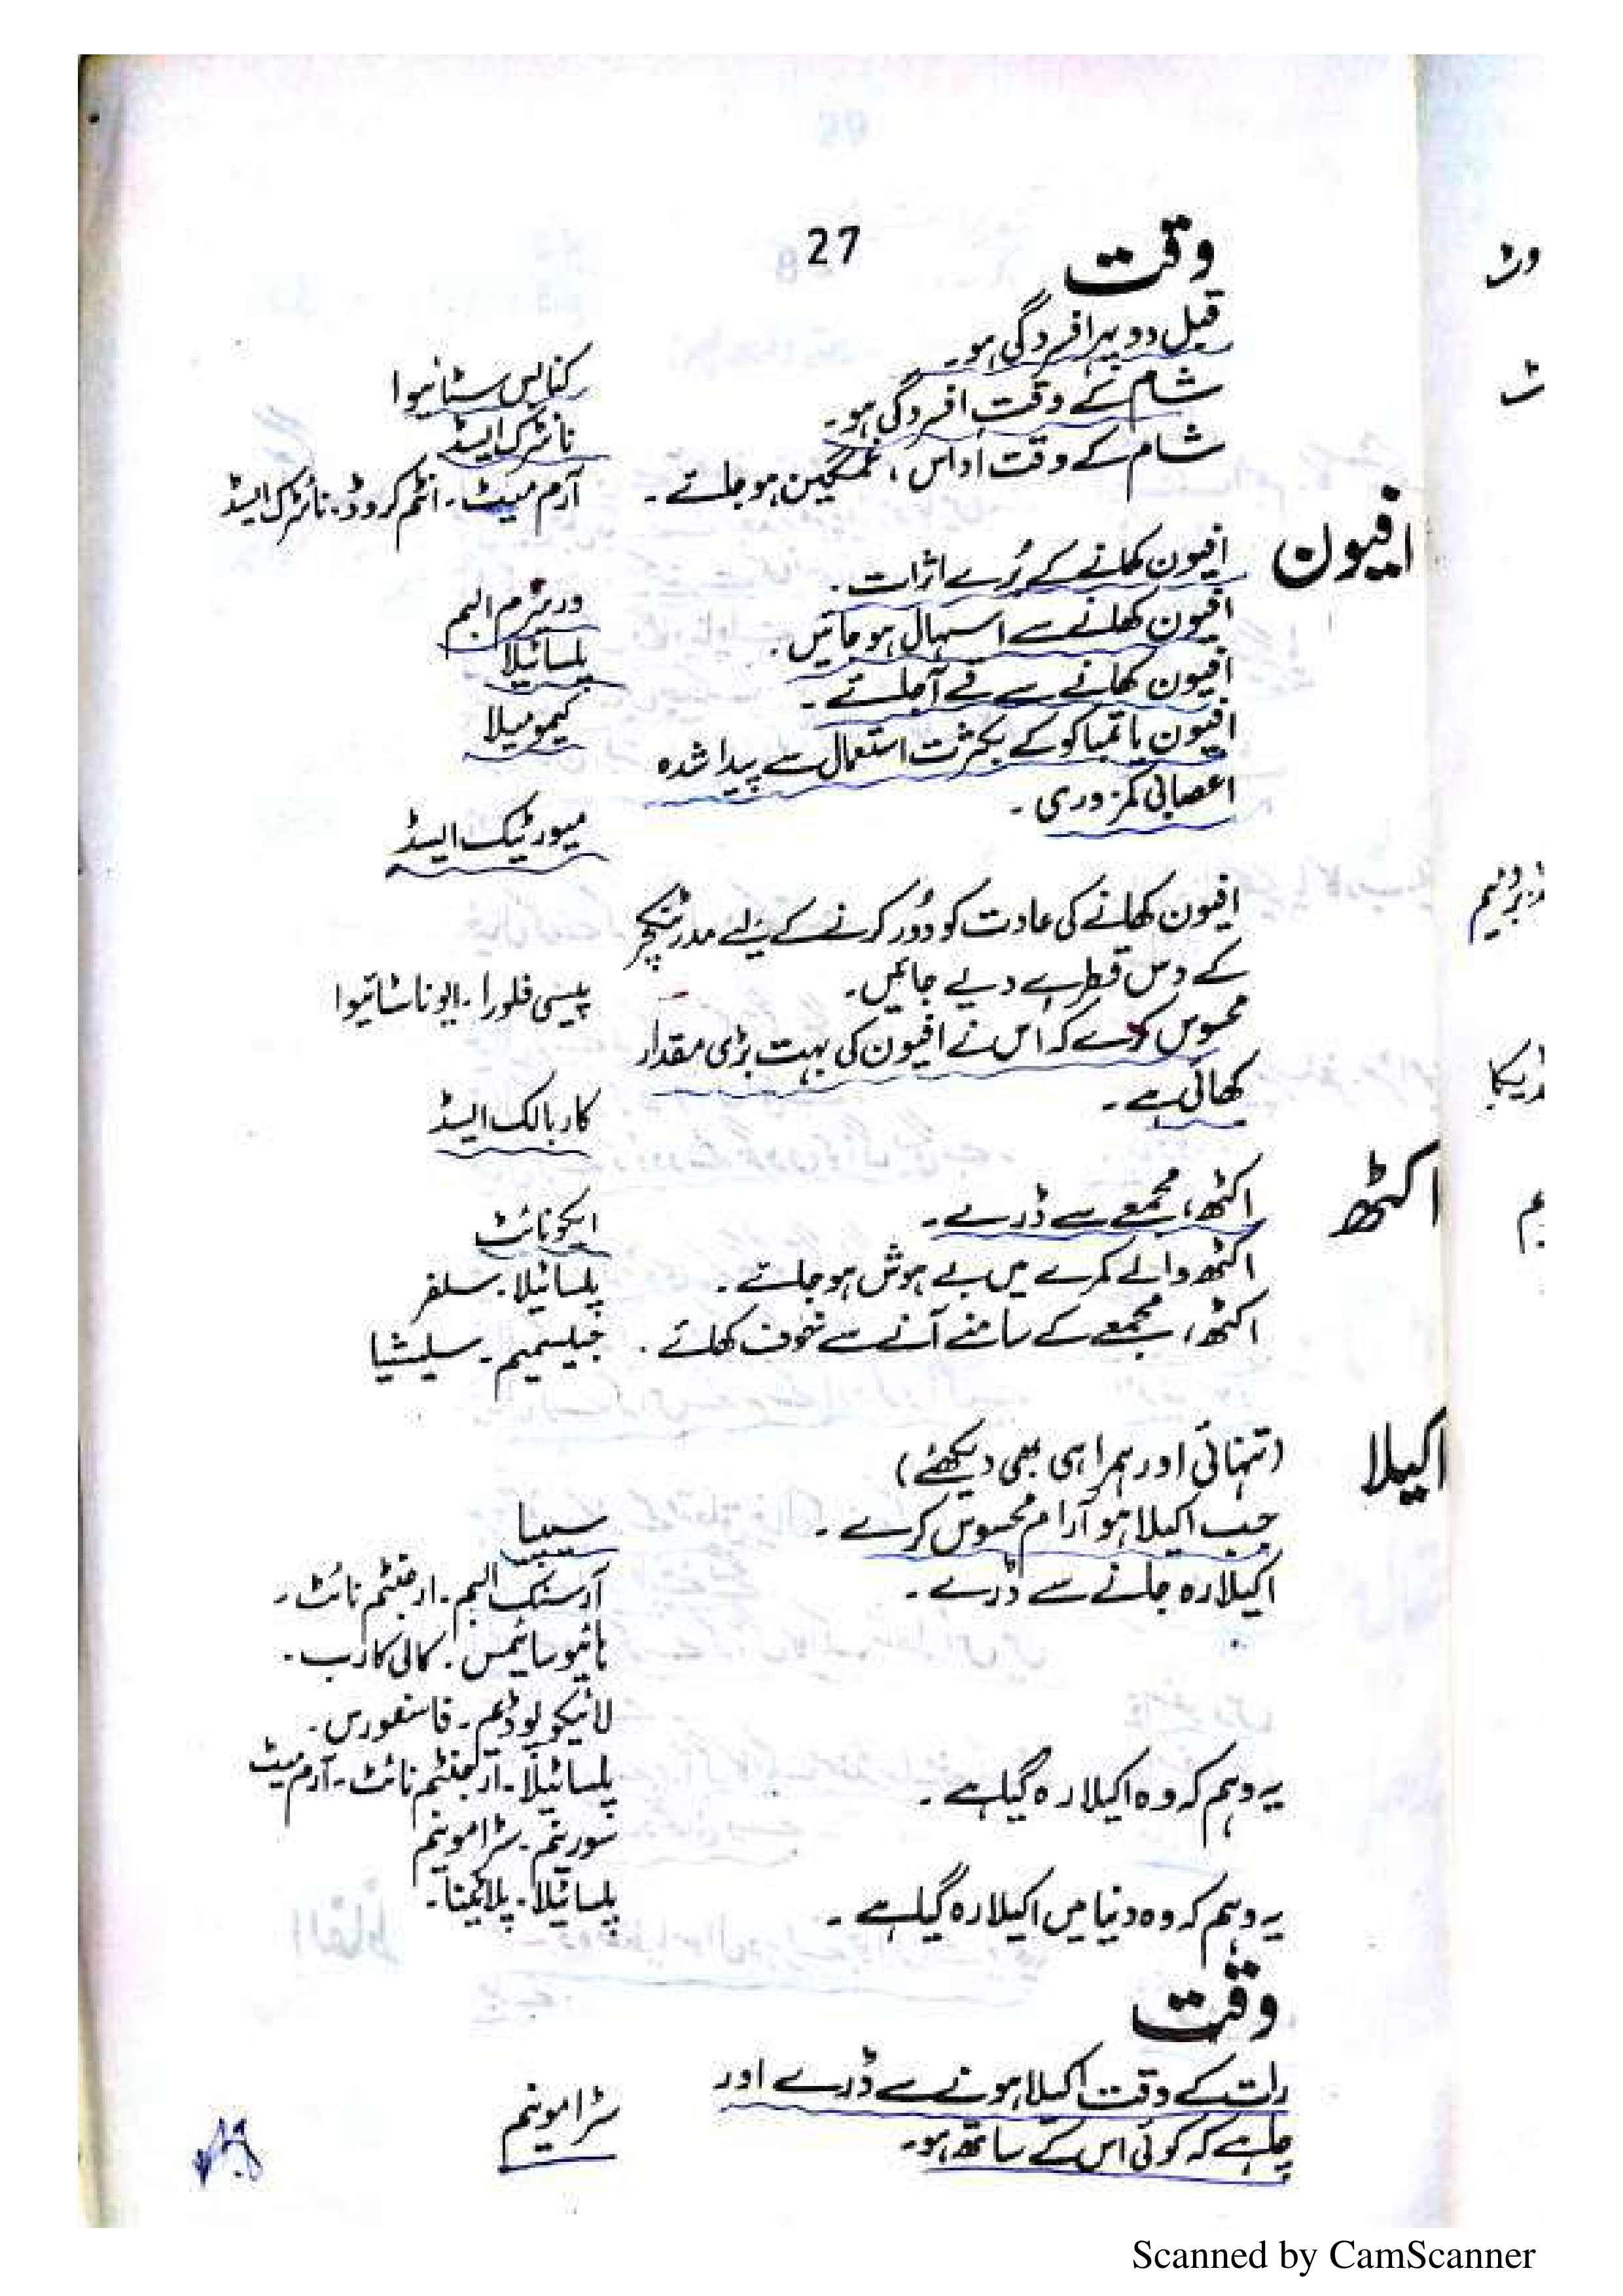 27
وقت
قبل دوپہر افسردگی ہو۔
کنابس سٹائیوا
شام کے وقت افسردگی ہو۔
نائٹرک ایسڈ
شام کے وقت اداس، غمگین ہو جائے۔
آرم میٹ۔ انٹم کروڈ۔ نائٹرک ایسڈ
افیون
افیون کھانے کے بُرے اثرات۔
وریٹرم البم
افیون کھانے سے اسہال ہو جائیں۔
پلساٹیلا
افیون کھانے سے قے آجائے۔
کیمومیلا
افیون یا تمباکو کے بکثرت استعمال سے پیدا شدہ
اعصابی کمزوری۔
میورٹیک ایسڈ
افیون کھانے کی عادت کو دُور کرنے کے لئے مدر ٹنکچر
کے دس قطرے دیے جائیں۔
پیسی فلورا۔ ایوناسٹائیوا
محسوس کرے کہ اس نے افیون کی بہت بڑی مقدار
کھائی ہے۔
کاربالک ایسڈ
اکٹھ
اکٹھ، مجمعے سے ڈرے۔
ایکونائٹ
اکٹھ والے کمرے میں بے ہوش ہو جائے۔
پلساٹیلا۔ سلفر
اکٹھ، مجمعے کے سامنے آنے سے خوف کھائے۔
جیلسیمیم۔ سلیشیا
اکیلا
(تنہائی اور ہمراہی بھی دیکھئے)
جب اکیلا ہو آرام محسوس کرے۔
سیپیا
اکیلا رہ جانے سے ڈرے۔
آرسنک البم۔ ارجنٹم نائٹ۔
ہائیوسائیمس۔ کالی کارب۔
لائیکوپوڈیم۔ فاسفورس۔
یہ وہم کہ وہ اکیلا رہ گیا ہے۔
پلساٹیلا۔ آرجنٹم نائٹ۔ آرم میٹ
سورینم۔ سٹرامونیم
یہ وہم کہ وہ دنیا میں اکیلا رہ گیا ہے۔
پلساٹیلا۔ پلاٹینا۔
وقت
رات کے وقت اکیلا ہونے سے ڈرے اور
چاہے کہ کوئی اس کے ساتھ ہو۔
سٹرامونیم
Scanned by CamScanner